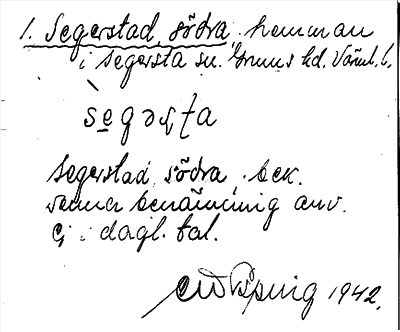 1. Segerstad, södra. hemman
i Segersta sn. Grums hd. Värml. l.
sègəʂʈa
Segerstad, södra. bek.
denna benämning anv.
ej i dagl. tal.
1942.